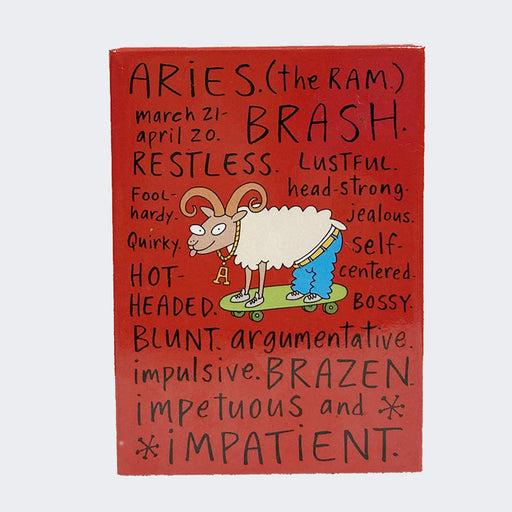 ARiES. (the RAM.)
march 21-
april 20. BRASH.
RESTLESS. LUSTFUL.
FOOL-
hardy. head-strong.
jealous.
Quirky. self-
centered.
HOT-
HEADED. BOSSY.
A
BLUNT. argumentative.
impulsive. BRAZEN.
impetuous and *
* iMPATiENT.